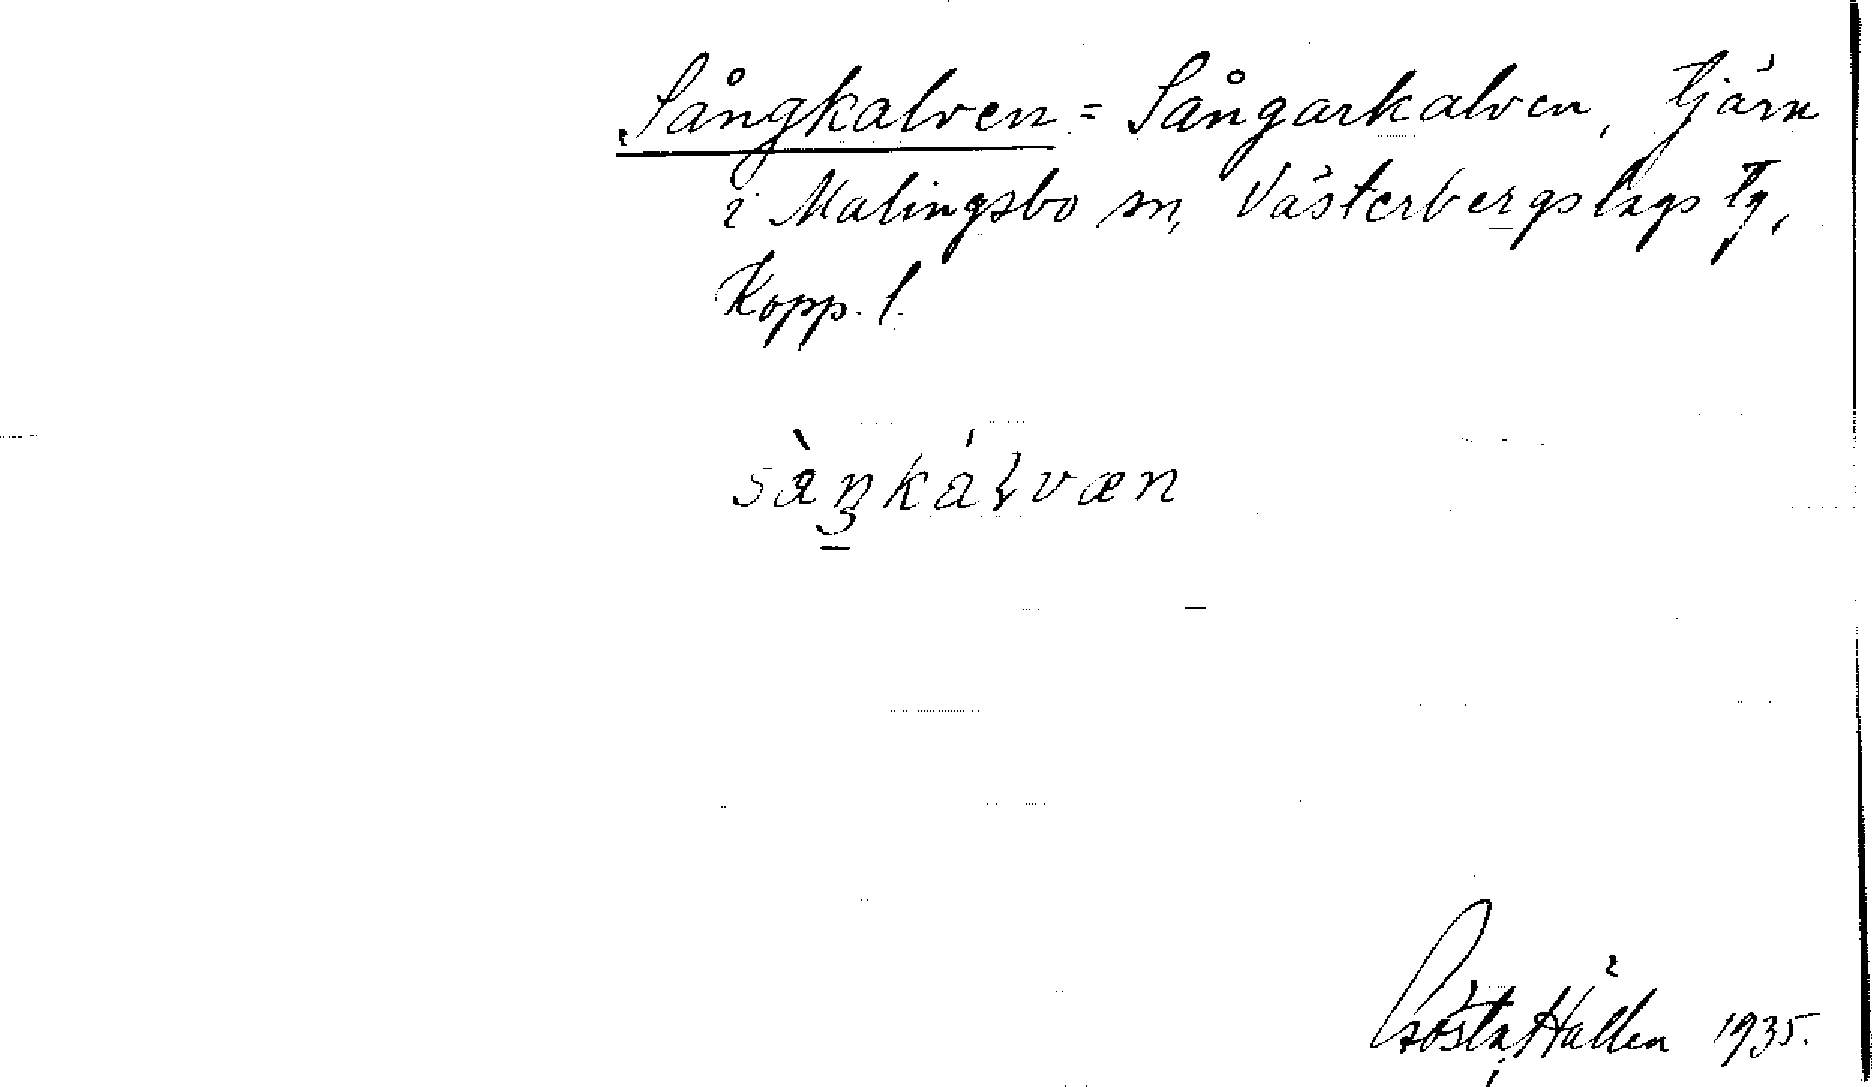 Sångkalven = Sångarkalven, tjärn
i Malingsbo sn, Västerbergslags tg,
Kopp. l.
sàŋkáɽvæn
Gösta Hallén 1935.